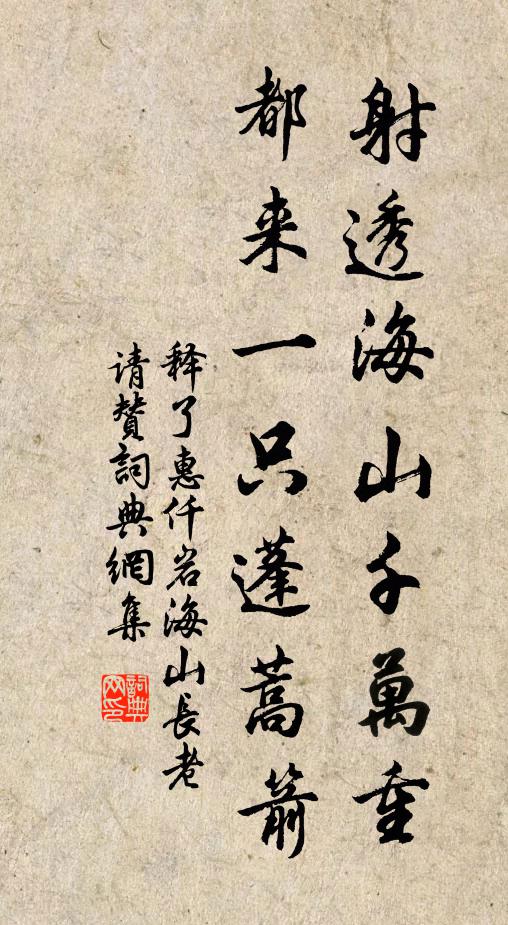 射透海山千萬重
都来一只蓬蒿箭
释了惠仟岩海山長老
请赞詞典網集
詞典
网印